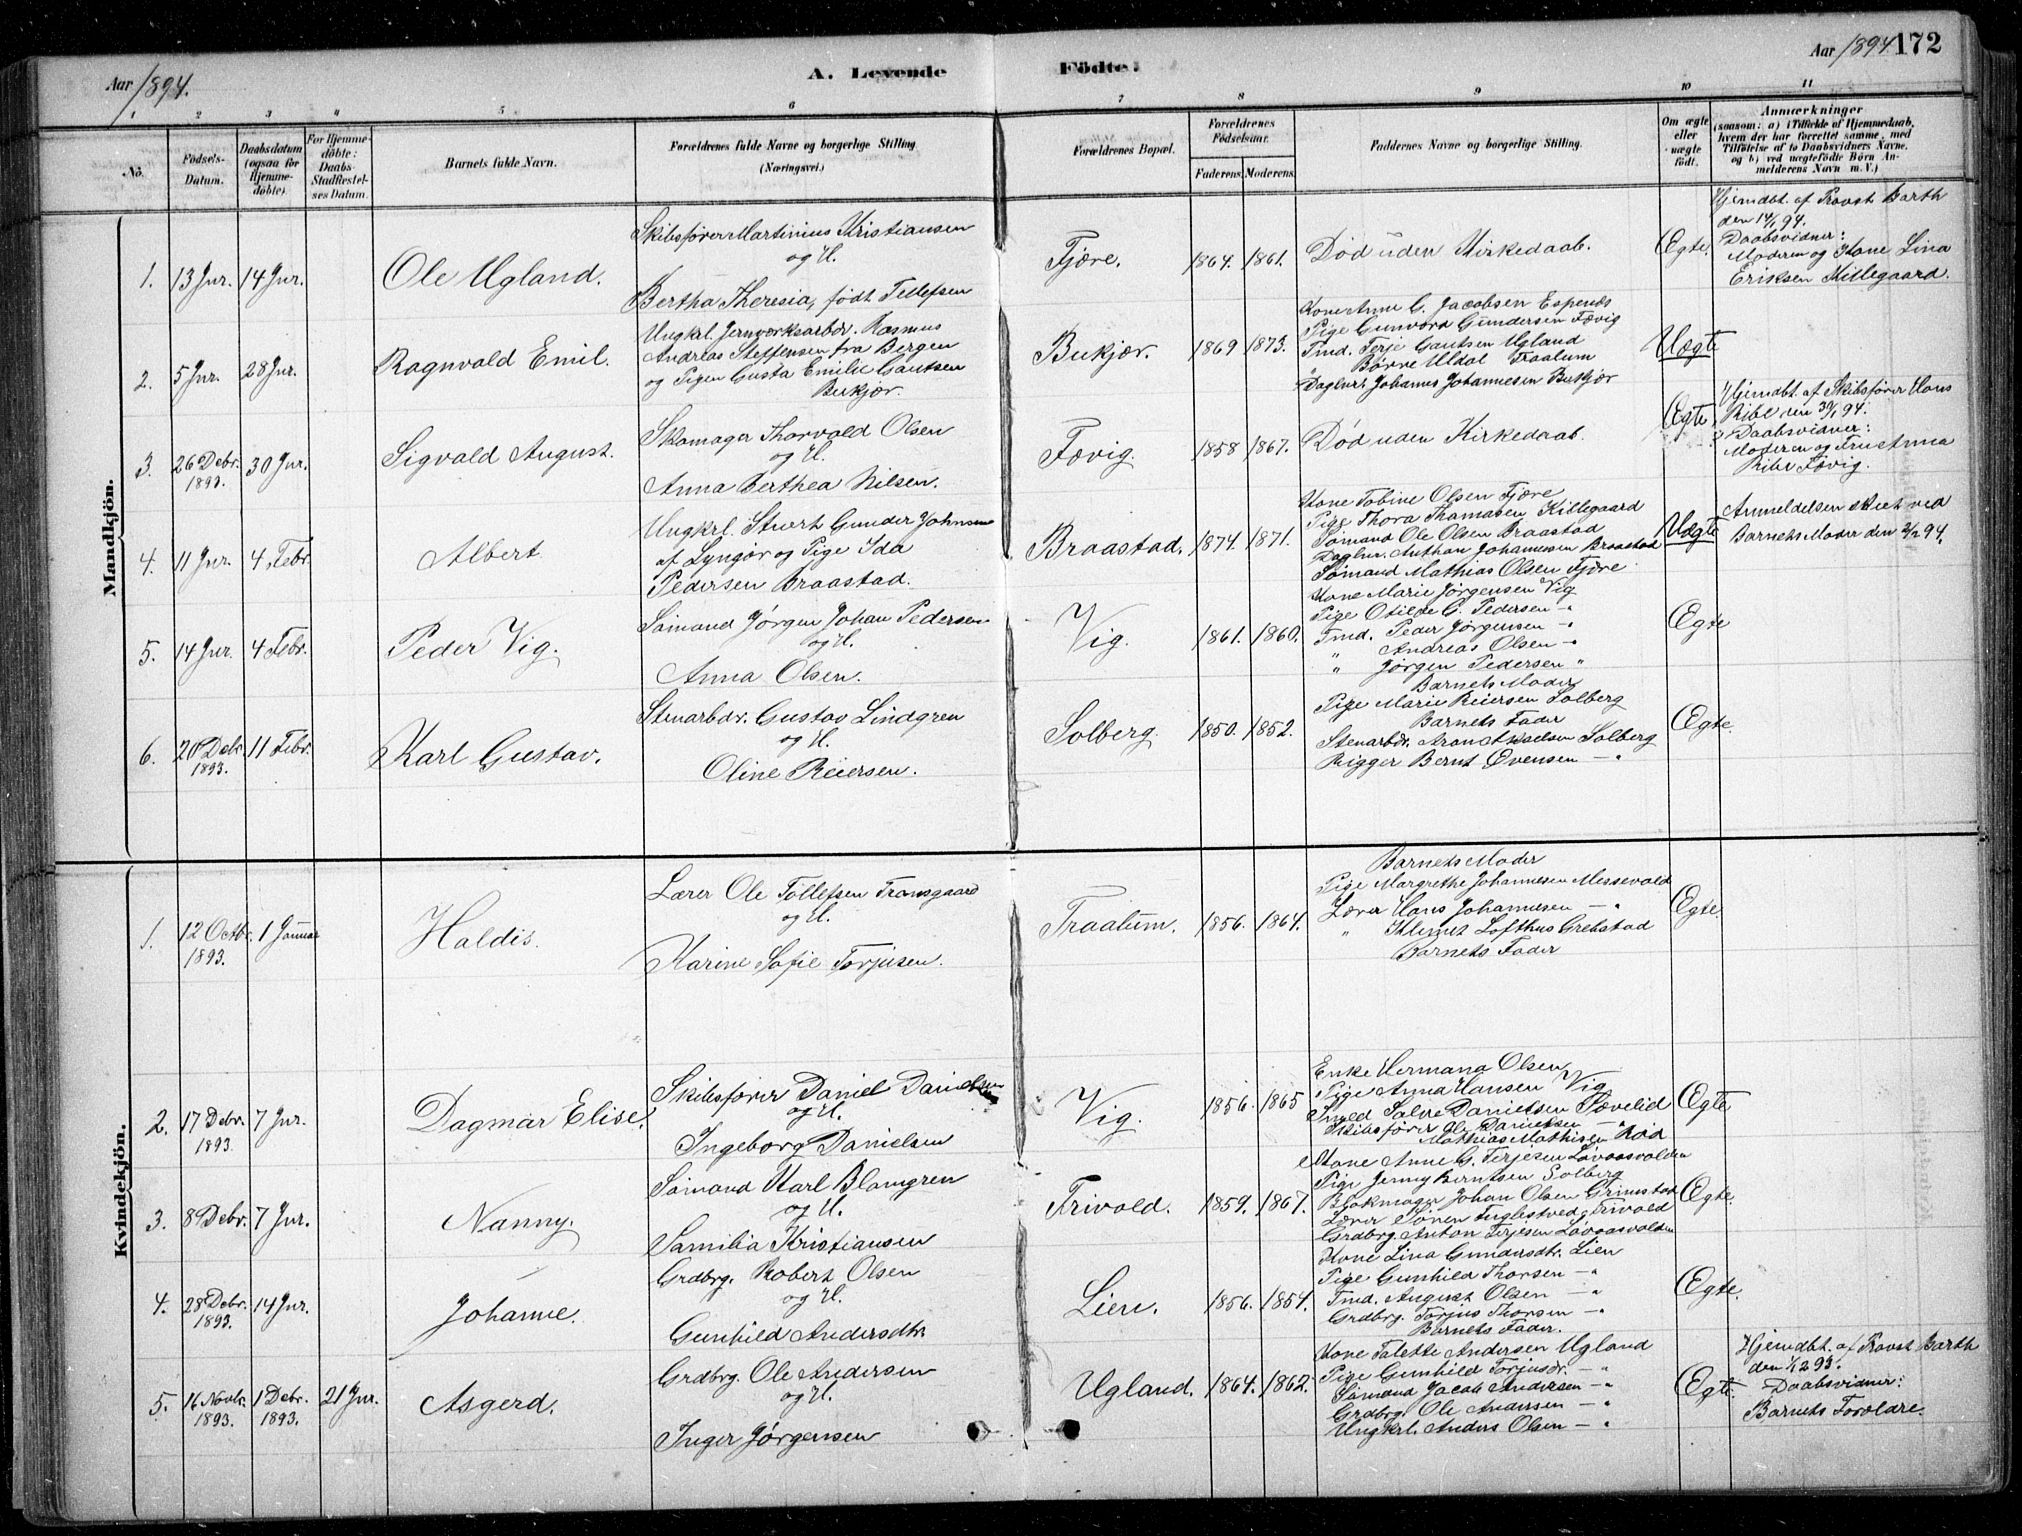 Aar 1894.
A. Levende
Fødte.
Aar 1894.
172
1
2
3
4
5
6
7
8
9
10
11
No.
Födsels-
Datum.
Daabsdatum
(ogsaa for
Hjemme-
döbte).
For Hjemme-
döbte:
Daabs
Stadfæstel-
ses Datum.
Barnets fulde Navn.
Forældrenes fulde Navne og borgerlige Stilling
(Næringsvei.)
Forældrenes Bopæl.
Forældrenes
Födselsaar.
Faderens.
Moderens.
Faddernes Navne og borgerlige Stilling.
Om ægte
eller
uægte
födt.
Anmærkninger
(saasom: a) i Tilfælde af Hjemmedaab,
hvem der har forrettet samme, med
Tilföielse af to Daabsvidners Navne,
og b) ved uægtefödte Börn An-
melderens Navn m. V.)
Mandkjön.
1.
13 Jnr.
14 Jnr.
Ole Ugland.
Skibsfører Martinius Kristiansen
og H.
Bertha Theresia, født Tellefsen
Fjære.
1864.
1861.
Død uden Kirkedaab.
Ægte.
Hjemdbt. af Provst Barth
den 14/1 94.
Daabsvidner:
Moderen og Kone Lina
Eriksen Killegaard.
2.
5 Jnr.
28 Jnr.
Ragnvald Emil.
Ungkrl. Jernværksarbdr. Rasmus
Andreas Steffensen fra Bergen
og Pigen Gusta Emilie Gautsen
Bukjær.
Bukjær.
1869
1873.
Kone Anne G. Jacobsen Espenæs
Pige Gunvora Gundersen Fævig
Tmd. Terje Gautsen Ugland
" Børre Uldal Traalum
Daglnr. Johannes Johannesen Bukjær
Uægte
3.
26 Debr.
1893.
30 Jnr.
Sigvald August.
Skomager Thorvald Olsen
og H.
Anna Berthea Nilsen.
Fævig.
1858
1867.
Død uden Kirkedaab.
Ægte.
Hjemdbt. af Skibsfører Hans
Ribe den 30/1 94.
Daabsvidner:
Moderen og Fru Anna
Ribe Fævig.
4.
11 Jnr.
4. Febr.
Albert.
Ungkrl. Stuert Gunder Johnsen
af Lyngør og Pige Ida
Pedersen Braastad.
Braastad.
1874.
1871.
Kone Tobine Olsen Fjære
Pige Thora Thomasen Killegaard
Sømand Ole Olsen Braastad
Daglnr. Nathan Johannessen Braastad
Sømand Mathias Olsen Fjære.
Uægte
Anmeldelsen skeet ved
Barnets Moder den 2/2 94.
5.
14 Jnr.
4 Febr.
Peder Vig.
Sømand Jørgen Johan Pedersen
og H.
Anna Olsen.
Vig.
1861.
1860.
Kone Marie Jørgensen Vig
Pige Otilde C. Pedersen - "
Tmd. Peder Jørgensen - "
" Andreas Olsen - "
" Jørgen Pedersen "
Ægte
6.
20 Debr.
1893.
11 Febr.
Karl Gustav.
Stenarbdr. Gustav Lindgren
og H.
Oline Reiersen.
Solberg.
1850.
1852.
Barnets Moder
Pige Marie Reiersen Solberg
Barnets Fader
Stenarbdr. Aron Axelsen Solberg
Rigger Bernt Evensen - "
Ægte.
Kvindekjön.
1.
12 Octbr.
1893.
1 Januar
Haldis.
Lærer Ole Tollefsen Transgaard
og H.
Karine Sofie Torjusen.
Traalum.
1856.
1864.
Barnets Moder
Pige Margrethe Johannesen Messevold
Lærer Hans Johannesen - "
" Klemet Lofthus Grebstad
Barnets Fader
Ægte.
2.
17 Debr.
1893.
7 Jnr.
Dagmar Elise.
Skibsfører Daniel Danielsen
og H.
Ingeborg Danielsen
Vig.
1856.
1865
Enke Hermana Olsen
Pige Anna Hansen Vig
Salve Danielsen
Skibsfører Ole Danielsen - "
Mathias Mathisen
Ægte
3.
8 Debr.
7 Jnr.
Nanny.
Sømand Karl Blomgren
og H.
Samilia Kristiansen
Trivold.
1859.
1867.
Kone Anne G. Terjesen Løvaasvolden
Pige Jenny Berntsen Solberg
Blokmager Johan Olsen Grimstad
Lærer Sören Fuglestved Trivold
Grdbrg. Anton Terjesen Løvaasvolden
Ægte.
4.
28 Debr.
1893.
14 Jnr.
Johanne.
Grdbrg. Robert Olsen
og H.
Gunhild Andersdtr.
Lien.
1856.
1854.
Kone Lina Gundersdtr. Lien
Pige Gunhild Thorsen - "
Tmd. August Olsen - "
Grdbrg. Torjus Thorsen - "
Barnets Fader.
Ægte.
5.
16 Novbr.
1893.
1 Debr.
1893.
21 Jnr.
Asgerd.
Grdbrg. Ole Andersen
og H.
Inger Jørgensen
Ugland.
1864.
1862.
Kone Talette Andersen Ugland
Pige Gunhild Torjusdr. - "
Sømand Jacob Andersen - "
Grdbrg. Ole Andersen - "
Ungkrl. Anders Olsen - "
Ægte.
Hjemdbt. af Provst Barth
den 1/12 93.
Daabsvidner:
Barnets Forældre.